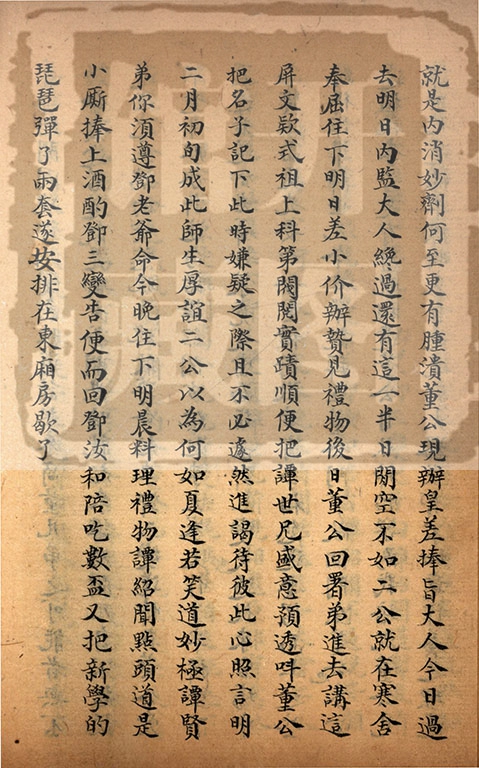 就是内消妙劑何至更有腫潰董公現辦皇差捧旨大人今日過
去明日内監大人纔過還有這一半日閒空不如二公就在寒舍
奉屈住下明日差小价辦贄見禮物後日董公回署弟進去講這
屏文欵式祖上科第閥閱實蹟順便把譚世兄盛意預透呌董公
把名子記下此時嫌疑之際且不必遽然進謁待彼此心照言明
二月初旬成此師生厚誼二公以為何如夏逢若笑道妙極譚賢
弟你須遵鄧老爺命今晚住下明晨料理禮物譚紹聞點頭道是
小厮捧上酒酌鄧三變告便而回鄧汝和陪吃數盃又把新學的
琵琶彈了兩套遂安排在東廂房歇了